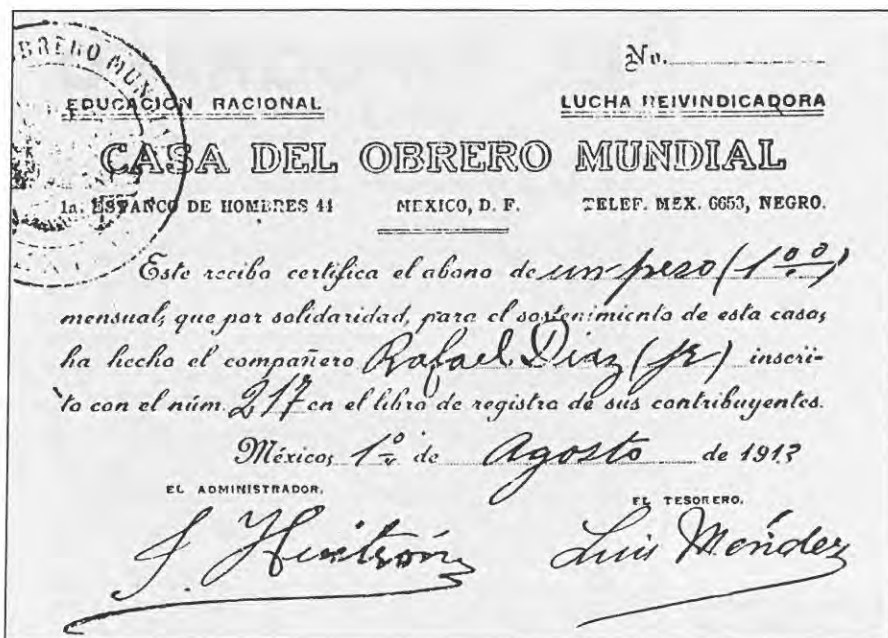 OBRERO MUN
No.
EDUCACIÓN RACIONAL LUCHA REIVINDICADORA
CASA DEL OBRERO MUNDIAL
1a. ESTANCO DE HOMBRES 44 MEXICO, D. F. TELEF. MEX. 6653, NEGRO.
Este recibo certifica el abono de un peso (1 00)
mensual, que por solidaridad, para el sostenimiento de esta casa,
ha hecho el compañero Rafael Diaz (jr) inscri-
to con el núm. 217 en el libro de registro de sus contribuyentes.
México, 1º de Agosto de 1913
EL ADMINISTRADOR. EL TESORERO.
J. Huitrón Luis Méndez